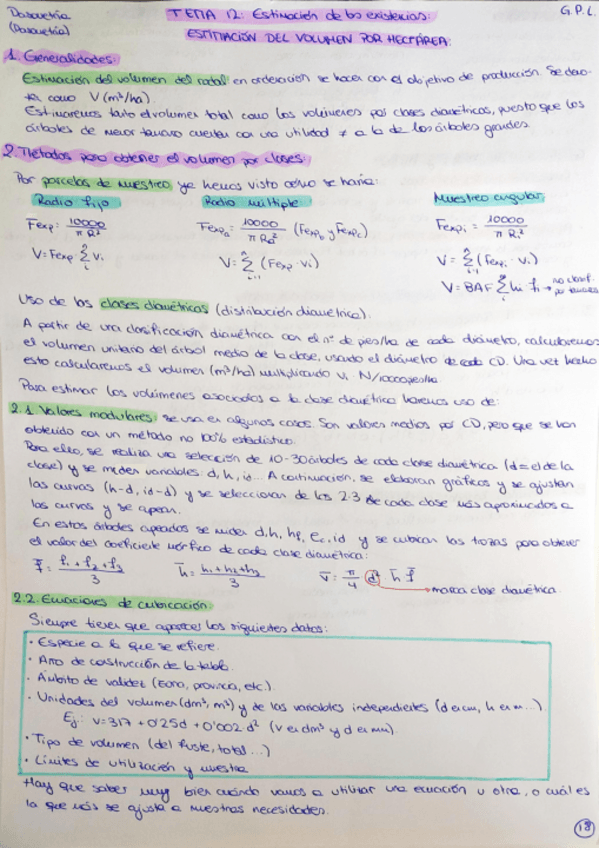 Dasometría
(Dasometría)
TEMA 12: Estimación de las existencias.
G.P.L.
ESTIMACIÓN DEL VOLUMEN POR HECTÁREA.
1. Generalidades.
Estimación del volumen del rodal en ordenación se hacer con el objetivo de producción. Se deno-
ta como V (m³/ha).
Estimaremos tanto el volumen total como los volúmenes por clases diamétricas, puesto que los
árboles de menor tamaño cuentan con una utilidad ≠ a la de los árboles grandes.
2. Métodos para obtener el volumen por clases.
Por parcelas de muestreo ya hemos visto cómo se haría:
Radio fijo Radio múltiple Muestreo angular
Fexp = 10000 / π R² Fexpa = 10000 / π Ra² (Fexpb y Fexpc) Fexpi = 10000 / π Ri²
V = Fexp Σ vi V = Σ (Fexp · vi) V = Σ (Fexpi · vi)
V = BAF Σ hi fi → no clasif. por tamaños
Uso de las clases diamétricas (distribución diamétrica).
A partir de una clasificación diamétrica con el nº de pies/ha de cada diámetro, calcularemos
el volumen unitario del árbol medio de la clase, usando el diámetro de cada CD. Una vez hecho
esto calcularemos el volumen (m³/ha) multiplicando vi N/10000pies/ha.
Para estimar los volúmenes asociados a la clase diamétrica haremos uso de:
2.1. Valores modulares: se usa en algunos casos. Son valores medios por CD, pero que se han
obtenido con un método no 100% estadístico.
Para ello, se realiza una selección de 10-30 árboles de cada clase diamétrica (d = el de la
clase) y se miden variables: d, h, id... A continuación, se elaboran gráficos y se ajustan
las curvas (h-d, id-d) y se seleccionan de los 2-3 de cada clase más aproximados a
las curvas y se apean.
En estos árboles apeados se miden d, h, hf, Ec, id y se cubican las trozas para obtener
el valor del coeficiente mórfico de cada clase diamétrica:
f̄ = f1 + f2 + f3 / 3 h̄ = h1 + h2 + h3 / 3 v̄ = π/4 d² h̄ f̄
→ marca clase diamétrica.
2.2. Ecuaciones de cubicación.
Siempre tienen que aparecer los siguientes datos:
· Especie a la que se refiere.
· Año de construcción de la tabla.
· Ámbito de validez (zona, provincia, etc.).
· Unidades del volumen (dm³, m³) y de las variables independientes (d en cm, h en m...).
Ej.: v = 317 + 0'25d + 0'002 d² (v en dm³ y d en mm).
· Tipo de volumen (del fuste, total...)
· Límites de utilización y muestra
Hay que saber muy bien cuándo vamos a utilizar una ecuación u otra, o cuál es
la que más se ajusta a nuestras necesidades.
18